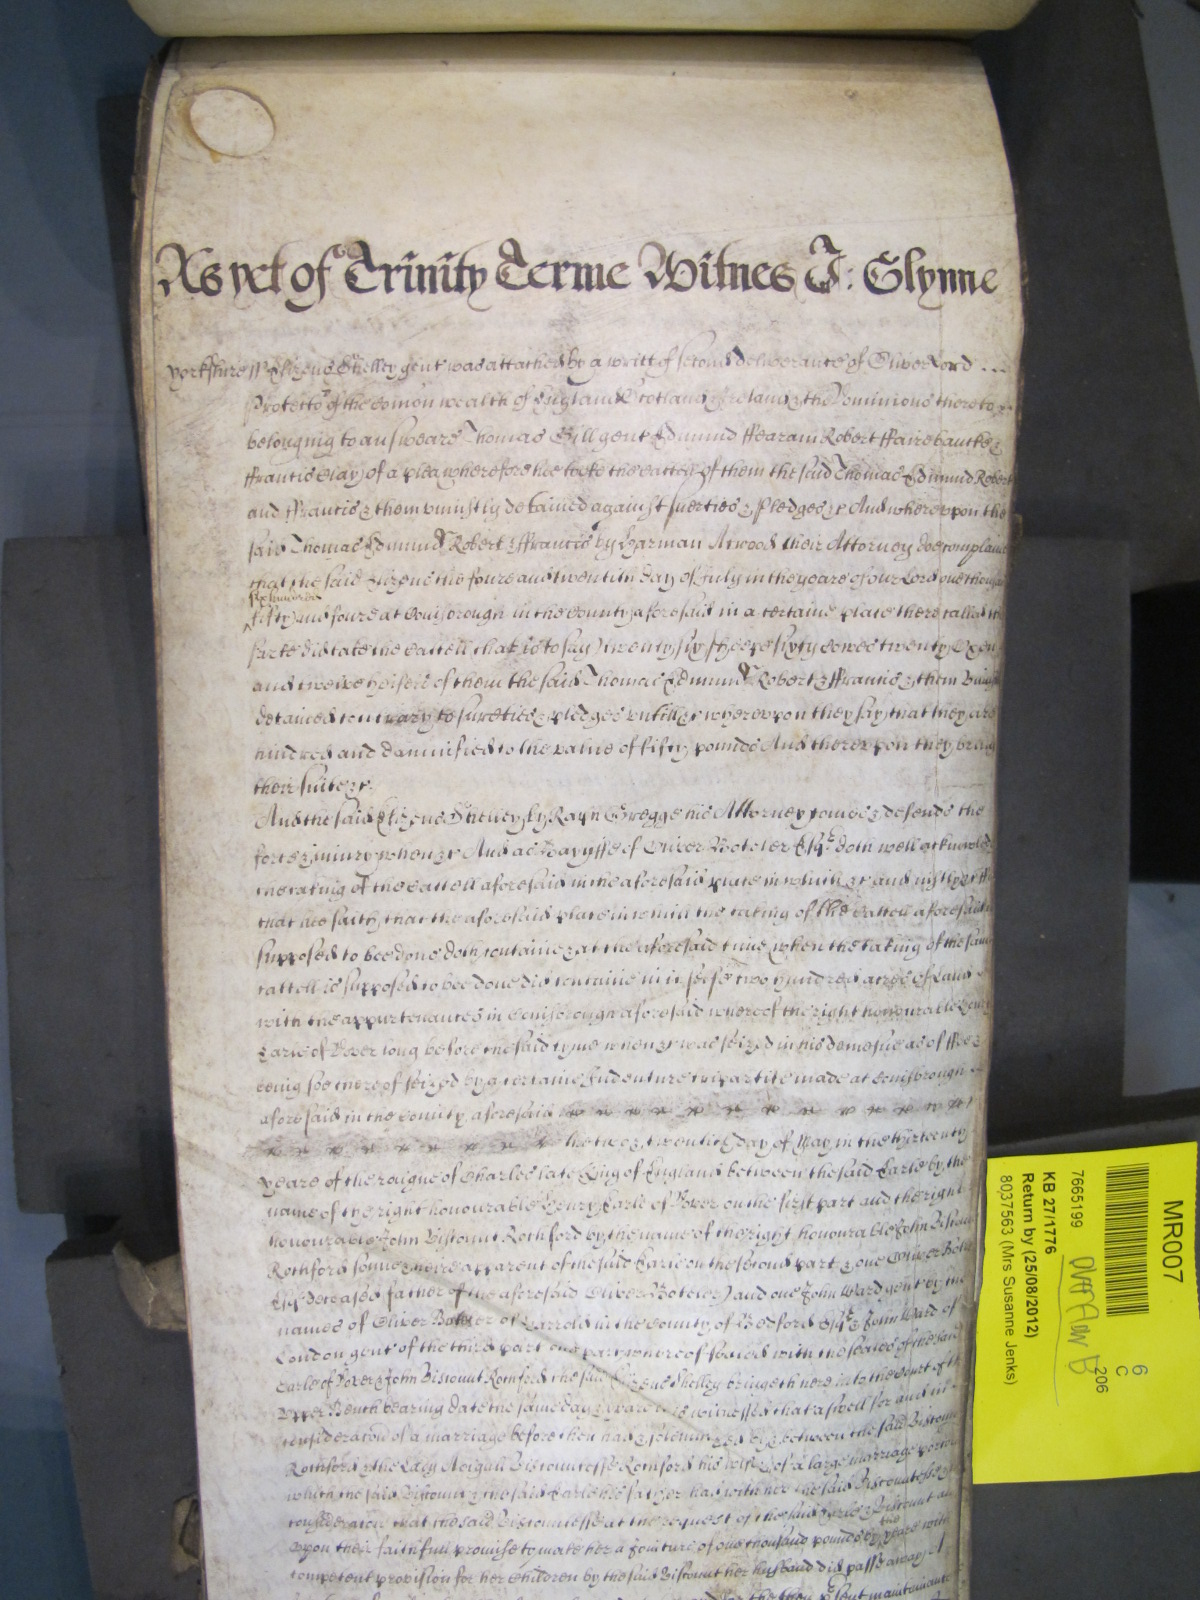 As yet of Trinity Terme Witnes J: Glynne
Yorkshire ss Elizeus Shelley gent was attached by a writt of second deliverance of Oliver Lord ...
Protector of the Comon wealth of England Scotland & Ireland & the Dominions thereto
belonging to answeare Thomas Gill gent Edmund ffearam Robert ffairebancke &
ffrancis Clay of a plea wherefore hee tooke the cattell of them the said Thomas Edmund Robert
and ffrancis & them uniustly detained against suerties & pledges &c And whereupon the
said Thomas Edmund Robert & ffrancis by Harman Atwood their Attorney doe complaine
that the said Elizeus the foure and twentith day of July in the yeare of our Lord one thousand
six hundred
fifty and foure at Conisbrough in the County aforesaid in a certaine place there called the
Parke did take the cattell that is to say twenty six sheepe sixty cowes twenty Oxen
and twelve heifers of them the said Thomas Edmund Robert & ffrancis & them
detained contrary to sureties & pledges untill &c whereupon they say that they are
hindred and damnified to the value of fifty pounds And thereupon they bring
their suite &c
And the said Elizeus Shelley by Raph Gregge his Attorney comes & defends the
force & iniury when &c And as Bayliffe of Oliver Boteler Esqr. doth well acknowledge
the taking of the cattell aforesaid in the aforesaid place in which &c and iustly &c
that hee saith that the aforesaid place in which the taking of the cattell aforesaid is
supposed to bee done doth containe & at the aforesaid time when the taking of the same
cattell is supposed to bee done did containe in it selfe two hundred acres of land
with the appurtenances in Conisbrough aforesaid whereof the right honourable Henry
Earle of Dover long before the said tyme when &c was seized in his demesne as of ffee &
being soe thereof seized by a certaine Indenture tripartite made at Conisbrough
aforesaid in the County aforesaid
the two & twentith day of May in the thirteenth
yeare of the reigne of Charles late King of England between the said Earle by the
name of the right honourable Henry Earle of Dover on the first part and the right
honourable John Viscount Rochford by the name of the right honourable John Viscount
Rochford sonne & heire apparent of the said Earle on the second part & one Oliver Boteler
Esqr deceased father of the aforesaid Oliver Boteler and one John Ward gent by the
names of Oliver Boteler of Harrold in the County of Bedford Esqr & John Ward of
London gent of the third part one part whereof sealed with the seales of the said
Earle of Dover & John Viscount Rochford the said Elizeus Shelley bringeth here into the Court of the
Upper Bench bearing date the same day & yeare it is witnessed that aswell for and in
consideracon of a marriage before then had & solemnized by & between the said Viscount
Rochford & the Lady Abigall Viscountesse Rochford his wife & of a large marriage porcon
which the said Viscount & the said Earle his father had with her the said Viscountesse
consideracon that the said Viscountesse at the request of the said Earle & Viscount and
upon their faithfull promise to make her a Joincture of one thousand pounds by the yeare with
competent provision for her children by the said Viscount her husband did passe away
MR007
7665199
KB 27/1776
Return by (25/08/2012)
8037563 (Mrs Susanne Jenks)
6
C
206